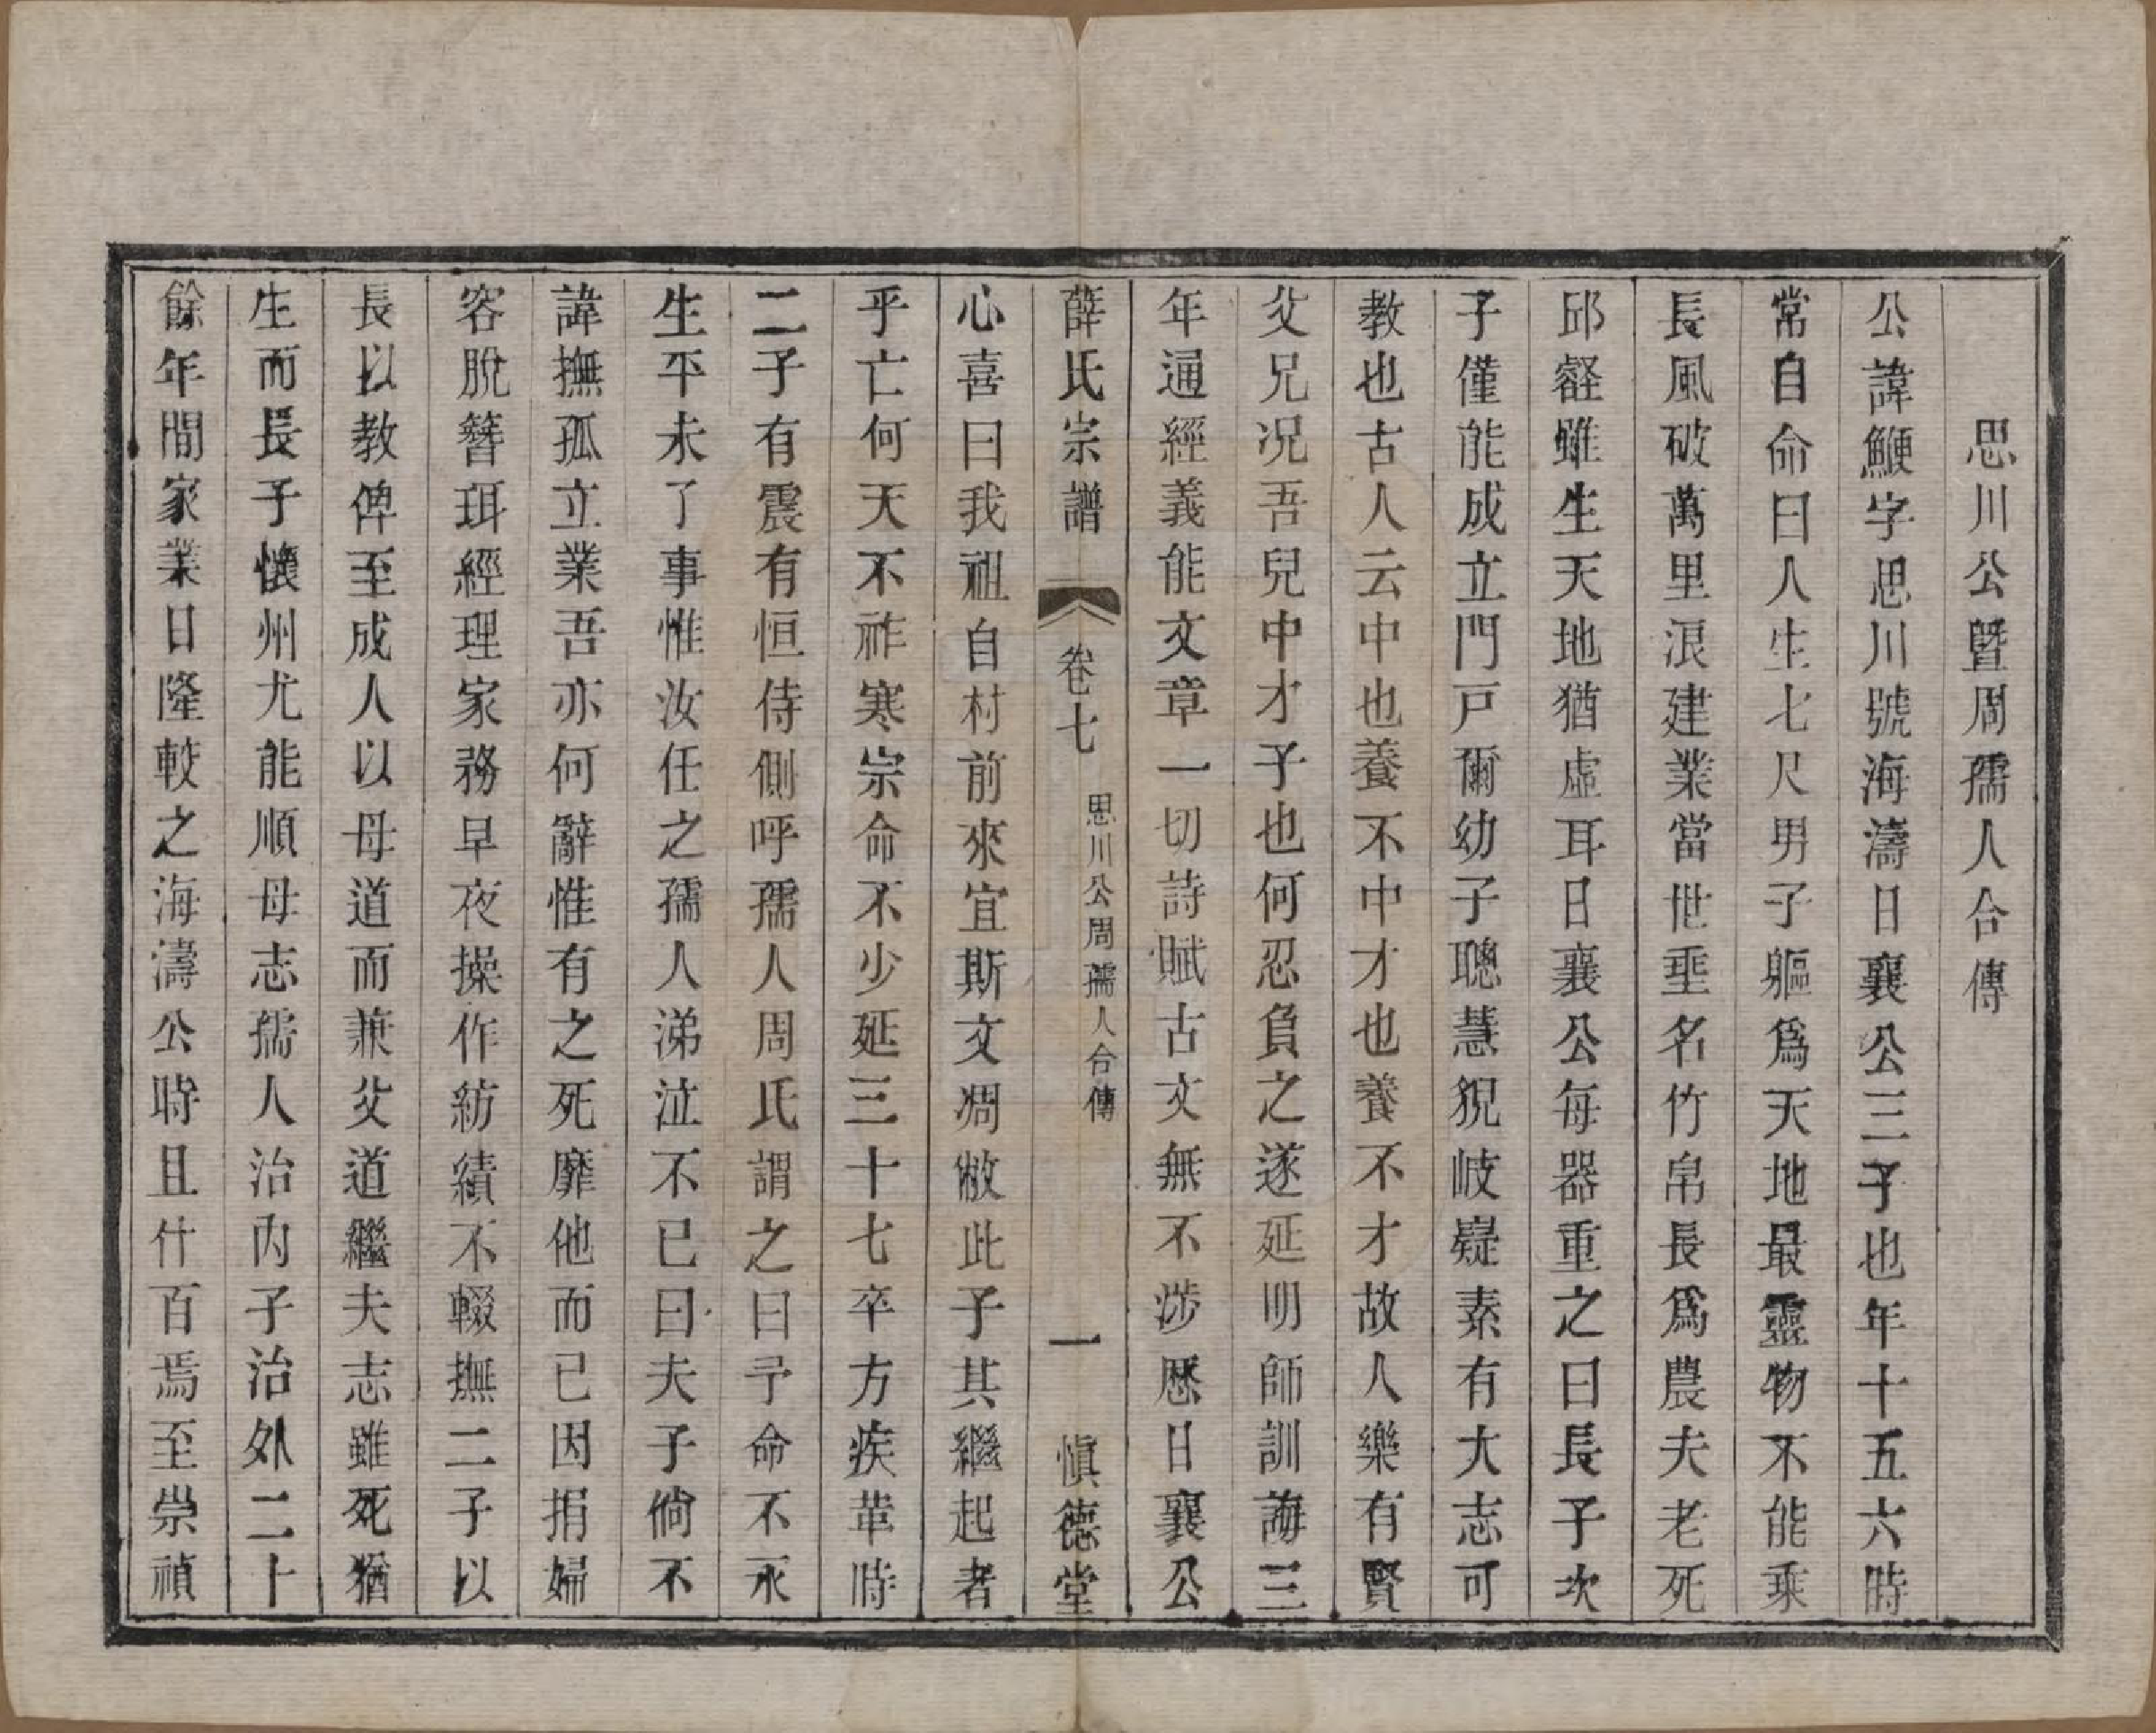 思川公曁周孺人合傳
公諱鯾字思川號海濤日襄公三子也年十五六時
常自命曰人生七尺男子軀爲天地最靈物不能乘
長風破萬里浪建業當世垂名竹帛長爲農夫老死
邱壑雖生天地猶虛耳日襄公每器重之曰長子次
子僅能成立門戸爾幼子聰慧猊岐嶷素有大志可
教也古人云中也養不中才也養不才故人樂有賢
父兄况吾兒中才子也何忍負之遂延明師訓誨三
年通經義能文章一切詩賦古文無不涉歷日襄公
薛氏宗譜 卷七 思川公周孺人合傳 一 愼德堂
心喜曰我祖自村前來宜斯文凋敝此子其繼起者
乎亡何天不祚寒宗命不少延三十七卒方疾革時
二子有震有恒侍側呼孺人周氏謂之曰予命不永
生平未了事惟汝任之孺人涕泣不已曰夫子倘不
諱撫孤立業吾亦何辭惟有之死靡他而已因捐婦
容脫簪珥經理家務早夜操作紡績不輟撫二子以
長以教俾至成人以母道而兼父道繼夫志雖死猶
生而長子懷州尤能順母志孺人治內子治外二十
餘年間家業日隆較之海濤公時且什百焉至崇禎